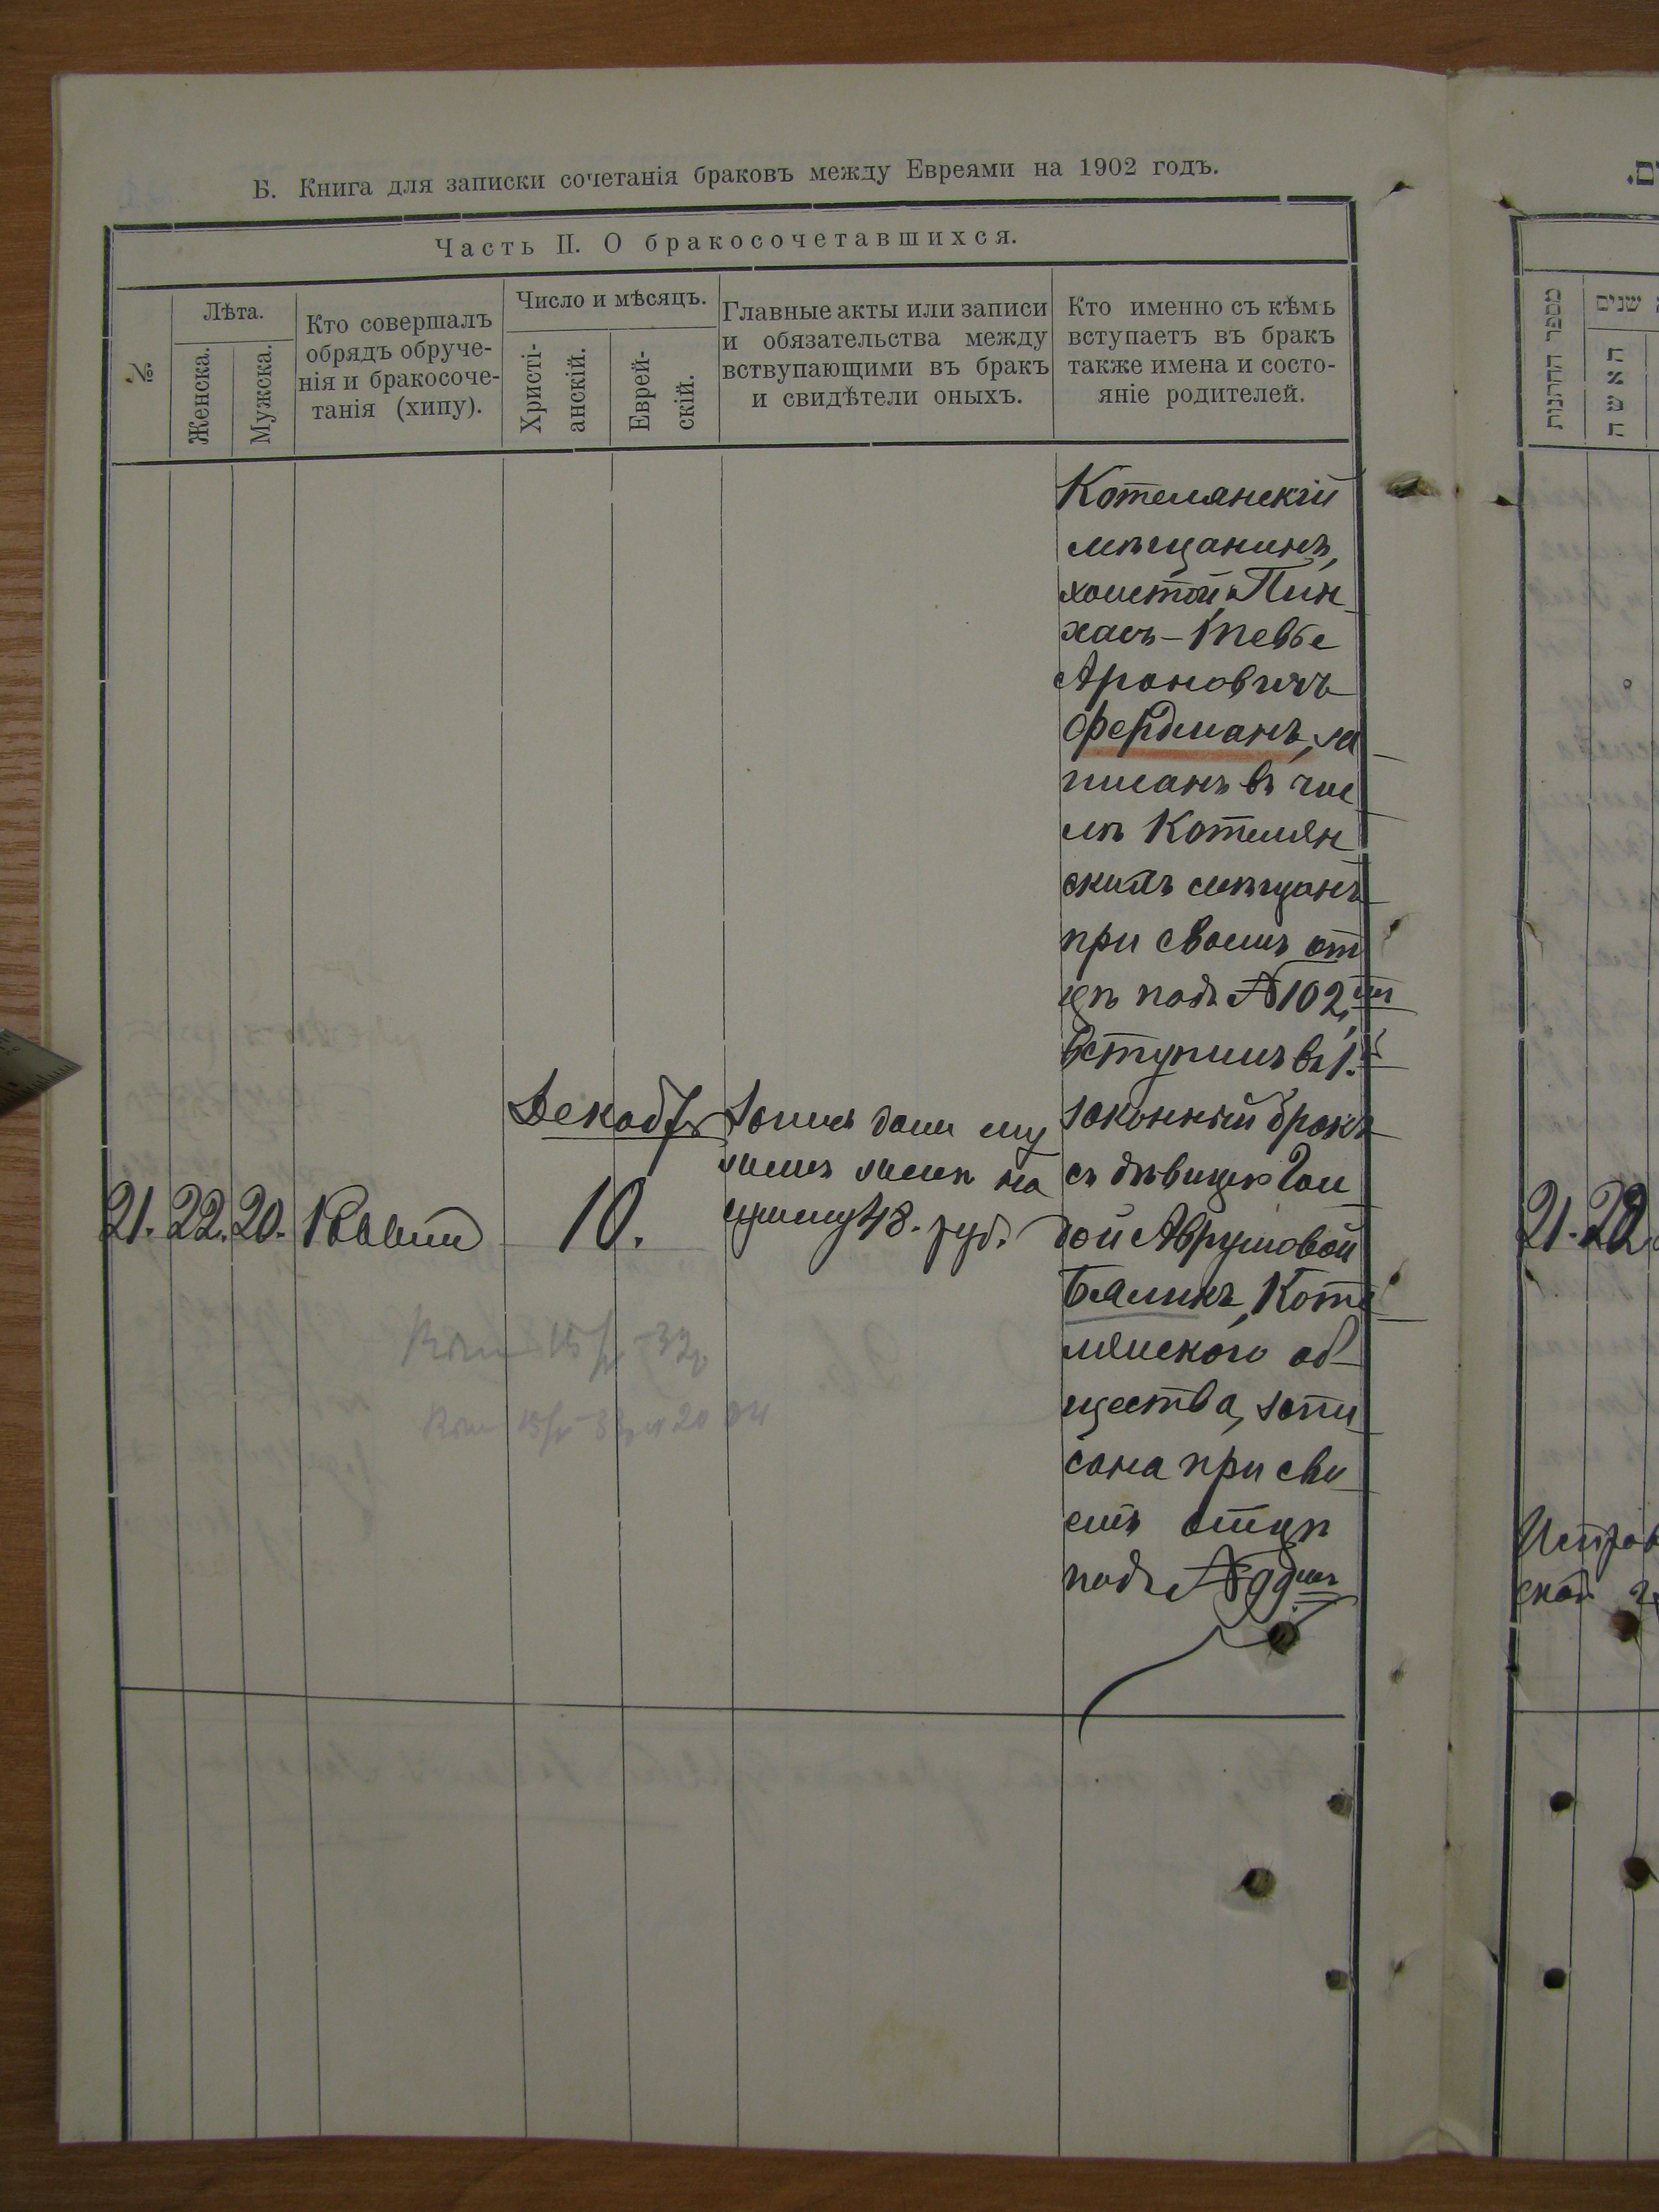 Б. Книга для записки сочетанія браковъ между Евреями на 1902 годъ.
Часть II. О бракосочетавшихся.
№
Лѣта.
Женска.
Мужска.
Кто совершалъ
обрядъ обруче-
нія и бракосоче-
танія (хипу).
Число и мѣсяцъ.
Христі-
анскій.
Еврей-
скій.
Главные акты или записи
и обязательства между
вствупающими въ бракъ
и свидѣтели оныхъ.
Кто именно съ кѣмъ
вступаетъ въ бракъ
также имена и состо-
яніе родителей.
Котелянскій
мѣщанинъ,
холостой Пин
хасъ-Тевье
Ароновичъ
Фердманъ, за
писанъ въ чис
лѣ Котелян
скихъ мѣщанъ
при своемъ от
цѣ подъ №102,
вступилъ въ 1.
законный бракъ
съ дѣвицею Гол
дой Аврумовой
Бяликъ, Коте
лянского об
щества, запи
сана при сво
емъ отцѣ
подъ №99
Декабр
Запись дали
на
сумму 48. руб.
21. 22. 20.
10.
מספר החתנות
שנים
האשה
21. 22